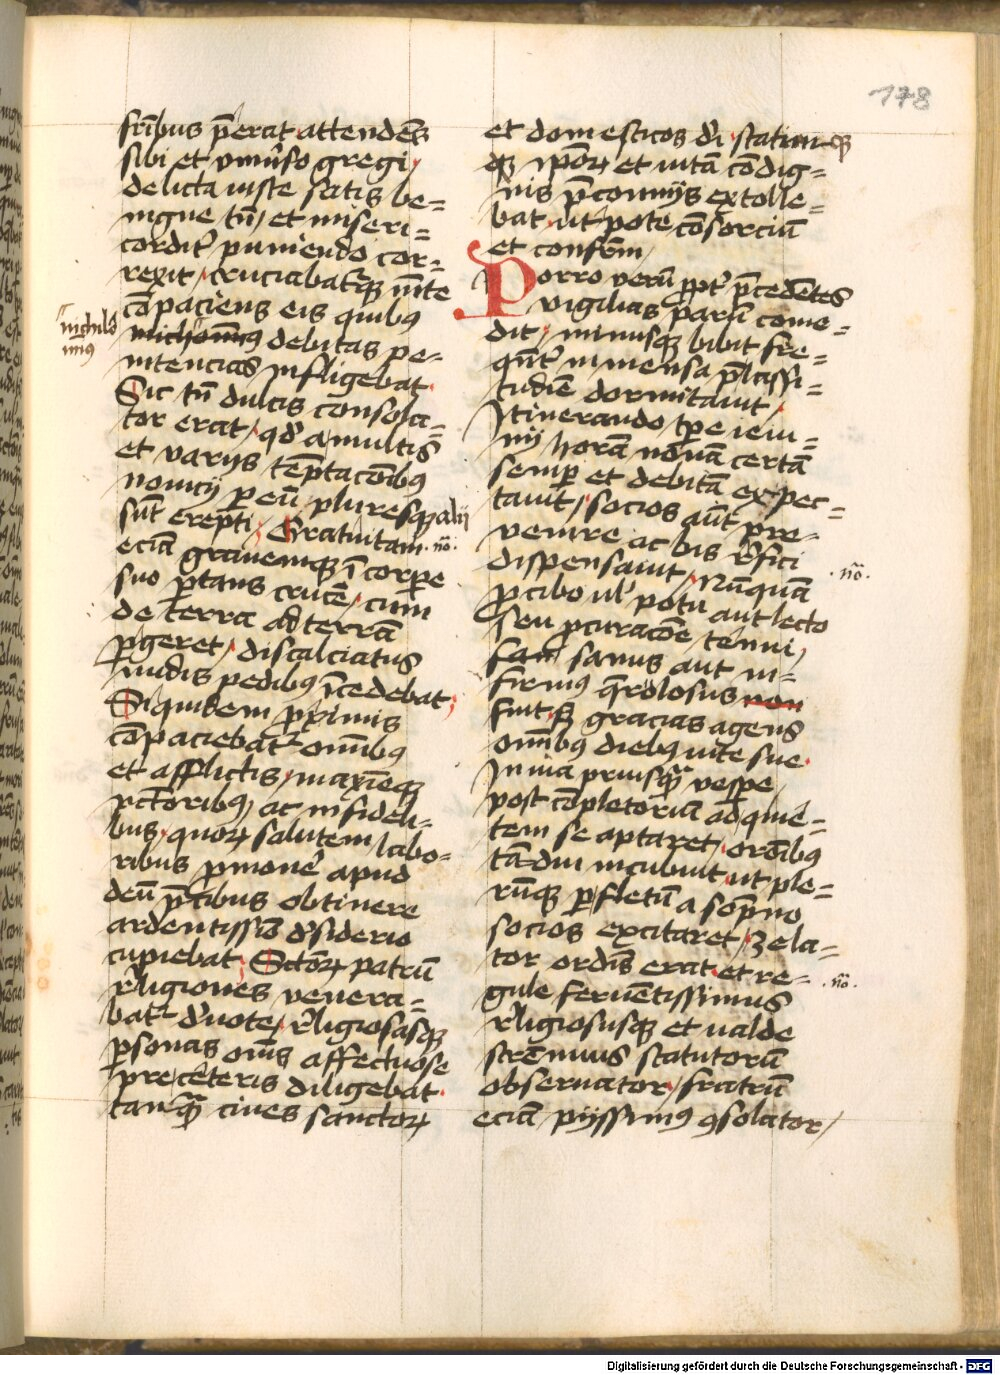 178
fribus perat attendens
sibi et vniuso gregi
delicta iuste satis be=
nigne tn et miseri=
cordit puniendo cor=
rexit cruciabatque mete
compaciens eis quibus
nichilo
minus
debitas pe=
nitencias infligebat
Sic tn dulcis consola=
tor erat qd a multis
et varijs temptacoibus
nouicij p eu pluresque alij
sut erepti Gratuitam .no.
ecia grauemque i corpe
suo portans cruce cum
de terra ad terra
pgeret discalciatus
nudis pedibus icedebat
Siquidem pprimis
compaciebat omibus
et afflictis maxieque
pctoribus ac infideli=
bus quoru salutem labo=
ribus apud
deu pcibus obtinere
ardentissio dsiderio
cupiebat Sctoru patru
rligiones venera=
bat duote rligiosasque
psonas ois affectuose
pre ceteris diligebat
tanqua ciues sanctoru
et domesticos di statum
que iporu et uita condig=
nis pconijs extolle=
bat ut pote consorciu
et confrem
Porro veru ppt pcedentes
vigilias paru come=
dit minusque bibit fre=
quter in mensa plassi=
tudie dormitauit
Itinerando tpe ieiu=
nij hora nona certa
semp et debita expec=
tauit socios aut pre=
venire ac bis refici
dispensauit Nunqua .no.
p cibo ul potu aut lecto
seu pcuracoe tenui
sanus aut in=
firmus querolosus non
fuit s gracias agens
omibus diebus uite sue
In uia priusqua vespe
post completoriu ad quie=
tem se aptaret oroibus
ta diu incubuit ut ple=
ruque p fletu a sompno
socios excitaret Zela=
tor ordis erat et re= .no.
gule feruentissimus
rligiosusque et ualde
strenuus statutoru
obseruator fratru
ecia pijssimus consolator
Digitalisierung gefördert durch die Deutsche Forschungsgemeinschaft - DFG